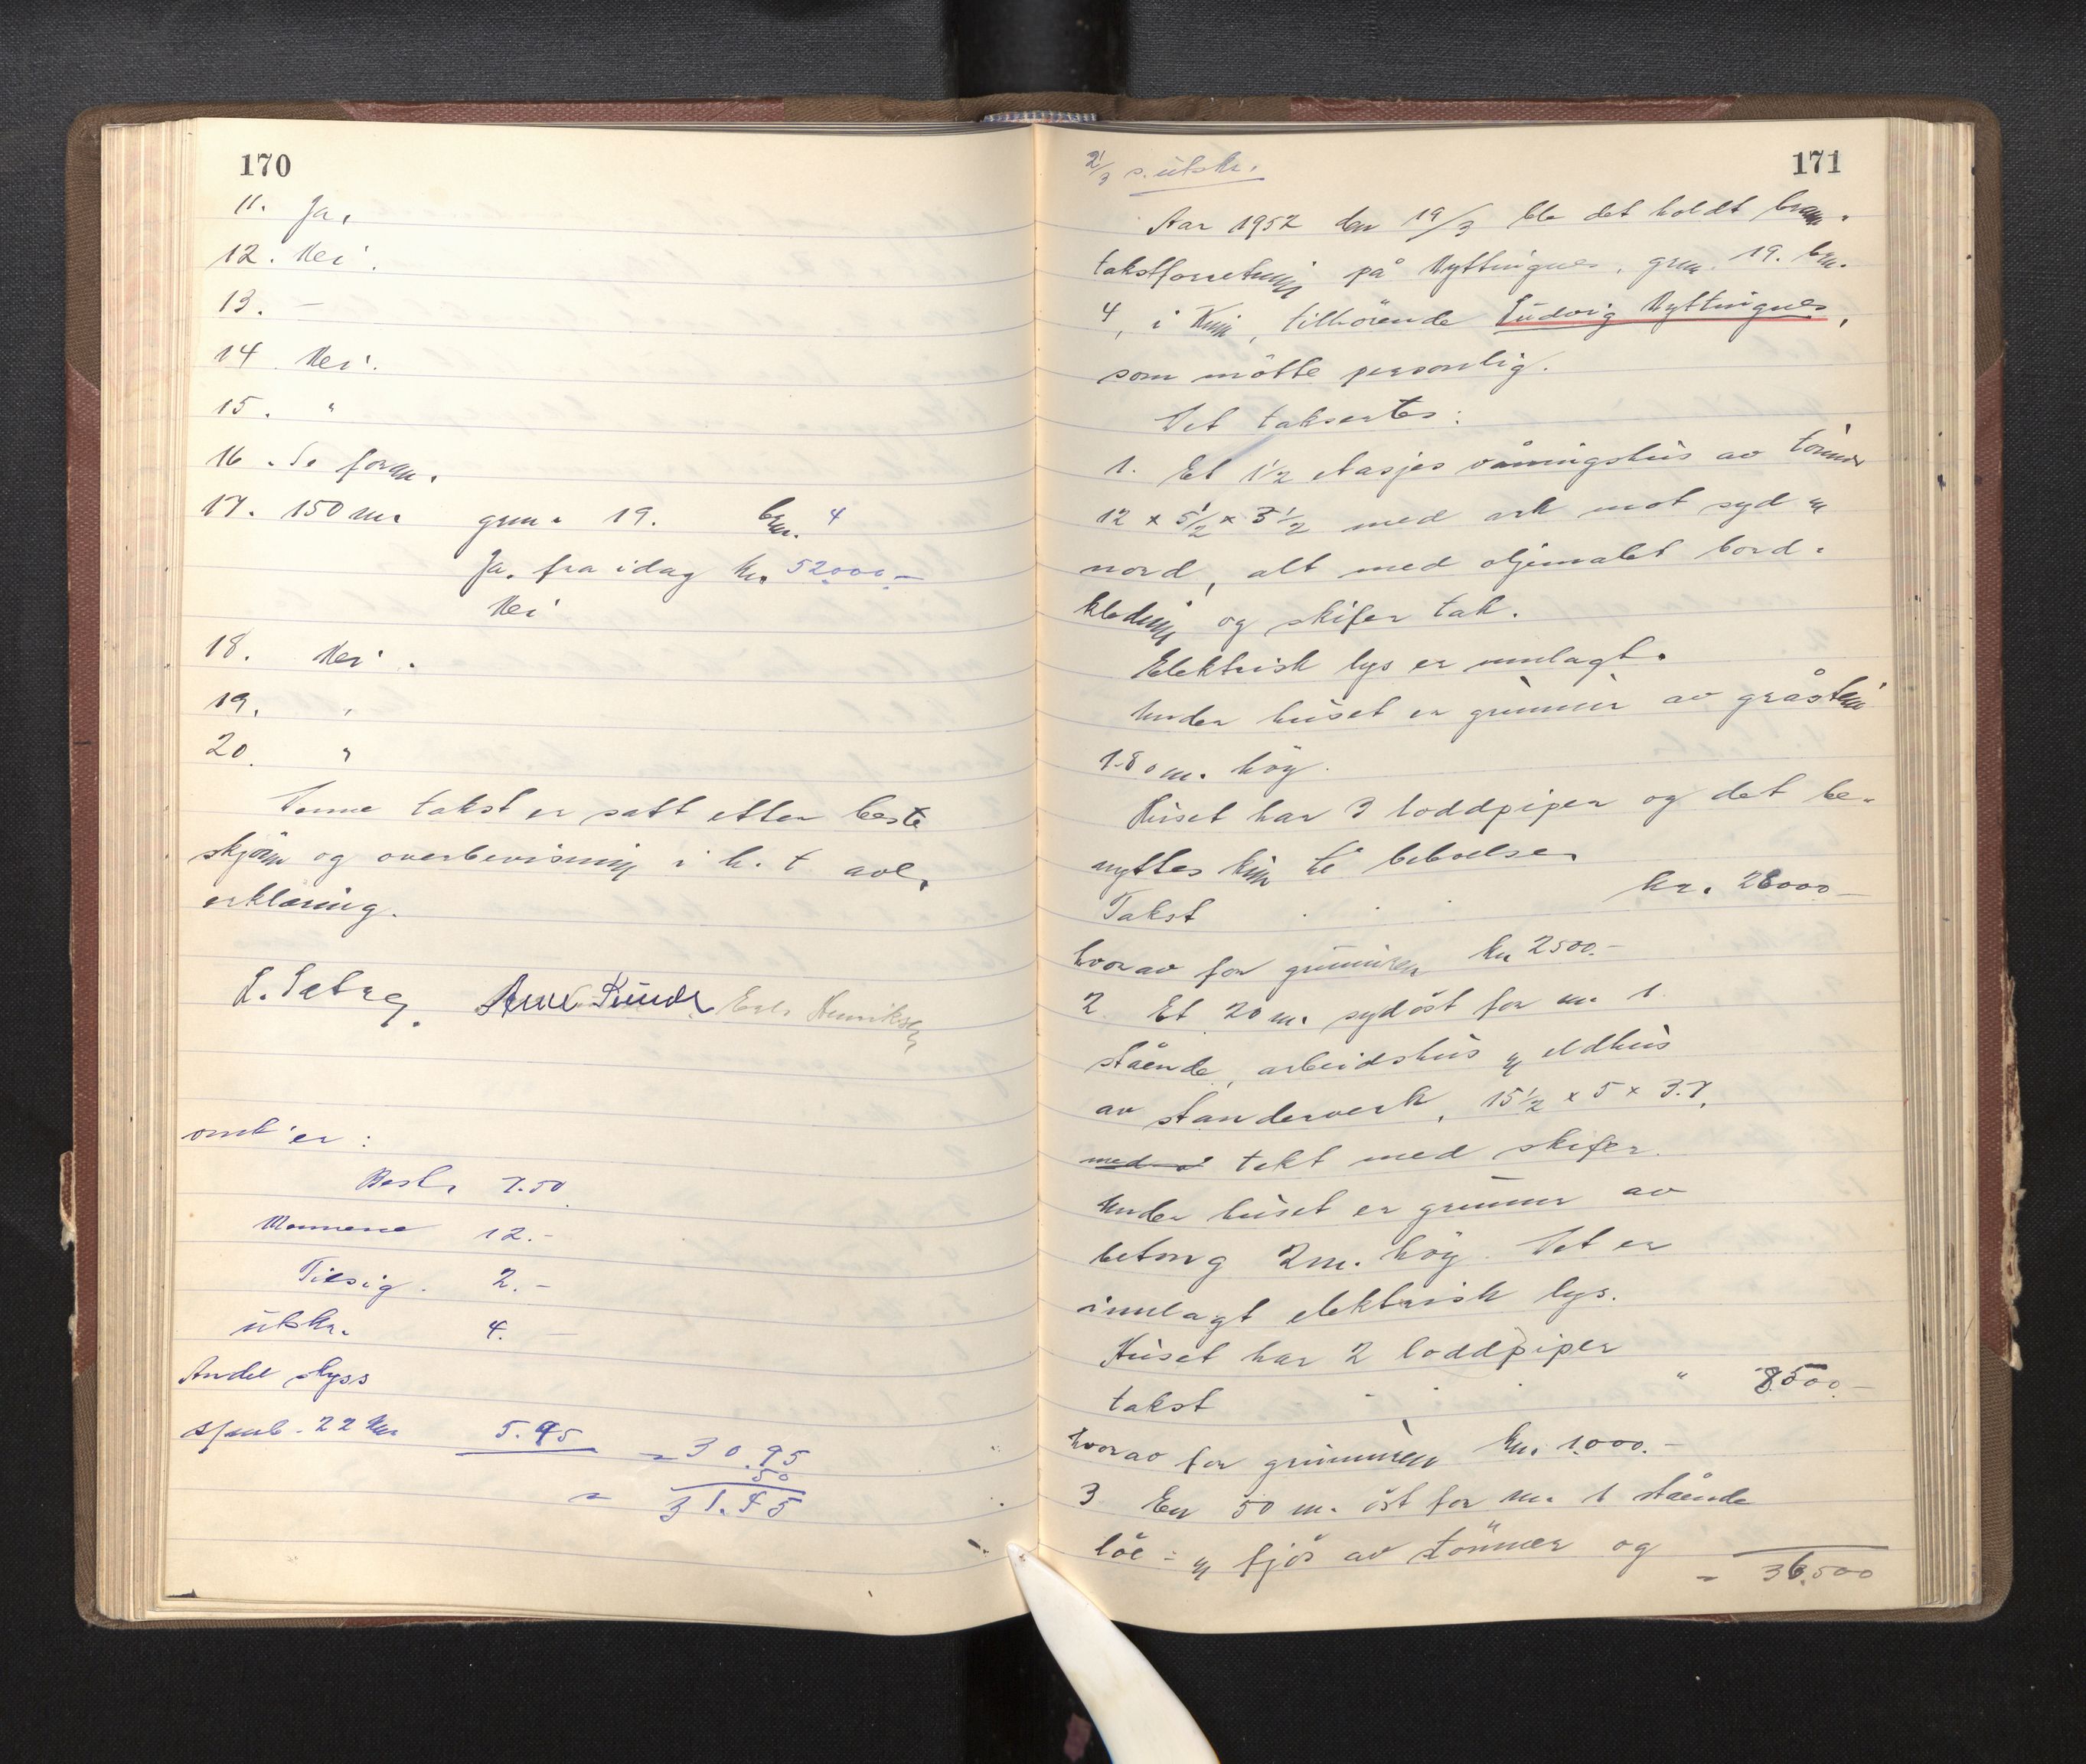 170
11. Ja,
12. Nei.
13. —
14. Nei.
15. "
16. Se foran.
17. 150 m. gnr. 19. bnr. 4
Ja, fra idag kr. 52000.—
Nei
18. Nei.
19. "
20. "
Denne takst er satt etter beste
skjønn og overbevisning i h. t. avl.
erklæring.
L. Sæbrg. Arne Henriksen
omk'er:
Best. 7.50
Mennene 12.-
Tilsig. 2.-
utskr. 4.—
Andel skyss
22 km 5.45 = 30.95
50
= 31.45
171
21/3 s. utskr.
Aar 1952 den 19/3 ble det holdt brann-
takstforretning på Nyttingnes, gnr. 19. bnr.
4, i Kinn, tilhørende Ludvig Nyttingnes,
som møtte personlig.
Det taksertes:
1. Et 1½ etasjes våningshus av tømmer
12 x 5½ x 3½ med ark mot syd og
nord, alt med oljemalet bord-
kledning og skifer tak.
Elektrisk lys er innlagt.
Under huset er grunnmur av gråstein
1.80 m. høy.
Huset har 3 loddpiper og det be-
nyttes kun til beboelse.
Takst . . . kr. 28000.—
hvorav for grunnmuren kr. 2500.—
2 Et 20 m. sydøst for nr. 1
stående, arbeidshus og eldhus
av standerverk, 15½ x 5 x 3.7,
med s tekt med skifer.
Under huset er grunnmur av
betong 2 m. høy. Det er
innlagt elektrisk lys.
Huset har 2 loddpiper
takst . . . " 8500.—
hvorav for grunnmuren kr. 1.000.—
3 En 50 m. øst for nr. 1 stående
løe- og fjøs av tømmer og
= 36.500